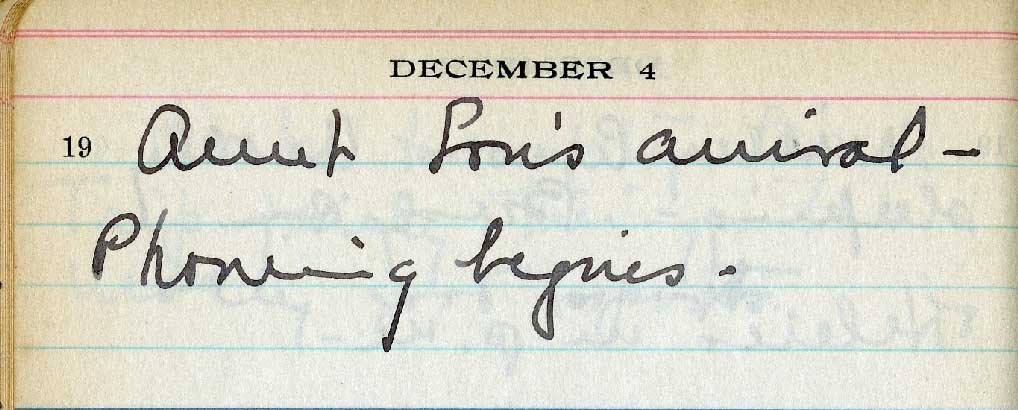 DECEMBER 4
19 Aunt Lou's arrival -
Phoning begins.